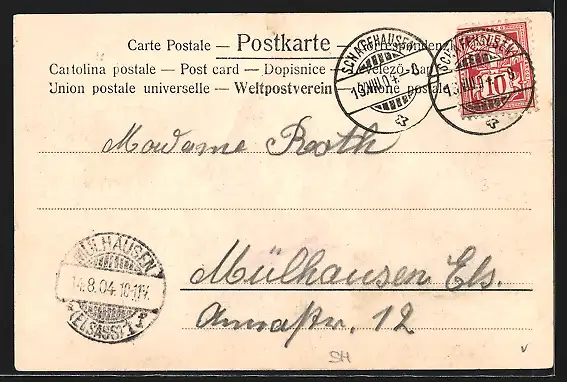 Carte Postale — Postkarte — Correspondenzk
Cartolina postale — Post card — Dopisnice — Levelező-Lap
Union postale universelle — Weltpostverein — Unione postale
SCHAFFHAUSEN
13.VIII.04
SCHAFFHAUSEN
13.VIII.04
10
Madame Roth
Mülhausen Els.
Annastr. 12
MÜLHAUSEN
14.8.04.10-11V.
(ELSASS) 1
SH